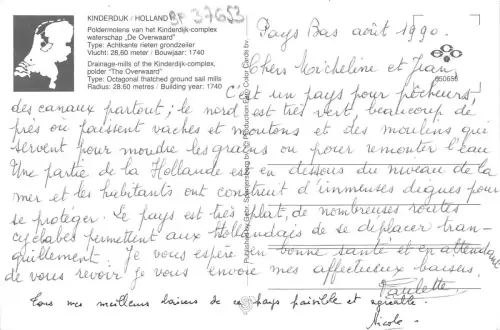 KINDERDIJK / HOLLAND
BF 37653
Poldermolens van het Kinderdijk-complex
waterschap „De Overwaard"
Type: Achtkante rieten grondzeiler
Vlucht: 28,60 meter / Bouwjaar: 1740
Drainage-mills of the Kinderdijk-complex,
polder "The Overwaard"
Type: Octagonal thatched ground sail mills
Radius: 28.60 metres / Building year: 1740
Pays Bas août 1990.
Chers Micheline et Jean,
C'est un pays pour pêcheurs,
des canaux partout ; le nord est très vert, beaucoup de
près où paissent vaches et moutons et des moulins qui
servent pour moudre les grains ou pour remonter l'eau
Une partie de la Hollande est en dessous du niveau de la
mer et les habitants ont construit d'immenses digues pour
se protéger. Le pays est très plat, de nombreuses routes
cyclabes permettent aux Hollandais de se déplacer tran-
quillement. Je vous espère en bonne santé et en attendant
de vous revoir je vous envoie mes affectueux baisers.
Paulette
Tous mes meilleurs baisers de ce pays paisible et agréable.
Nicole.